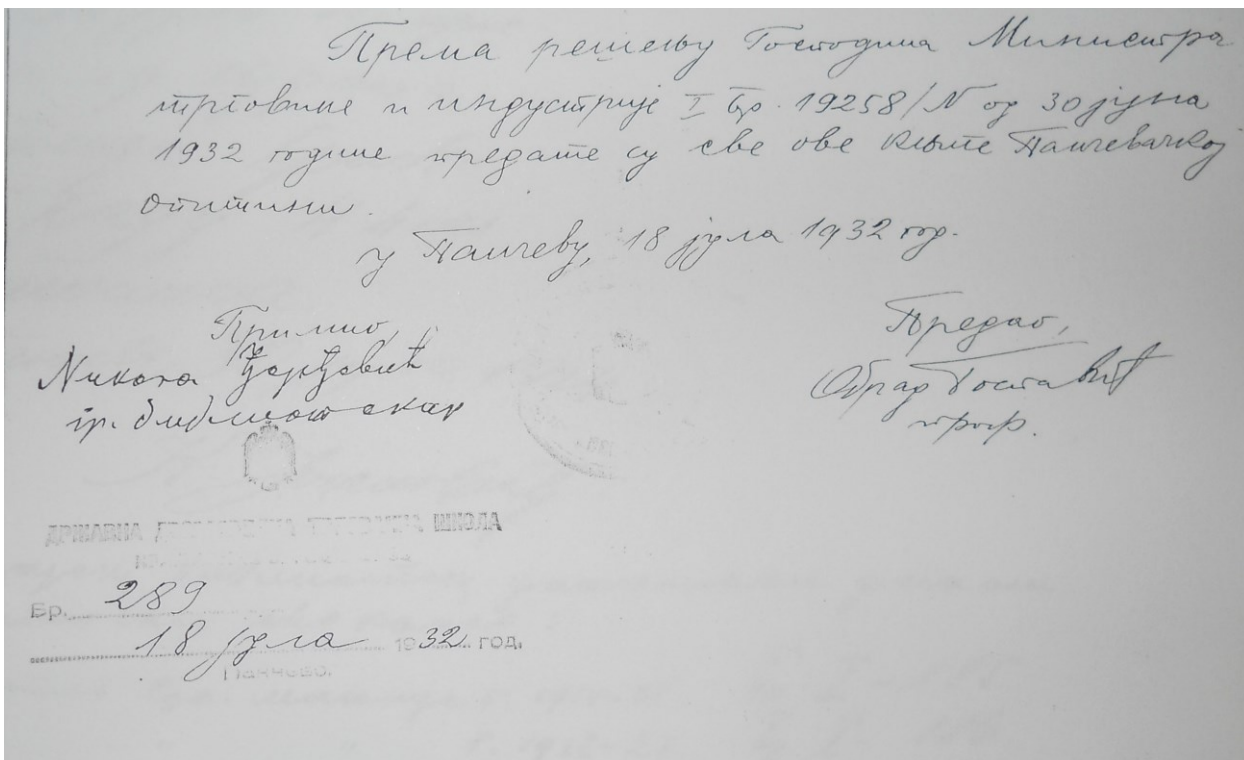 Према решењу Господина Министра
трговине и индустрије I Бр. 19258/N од 30 јуна
1932 године предате су све ове књиге Панчевачкој
општини.
у Панчеву, 18 јула 1932 год.
Примио,
Никола Ђорђевић
гр. библиотекар
Предао,
Обрад
проф.
ДРЖАВНА ТРГОВАЧКА ШКОЛА
Бр. 289
18 јула 1932 год.
Панчево.